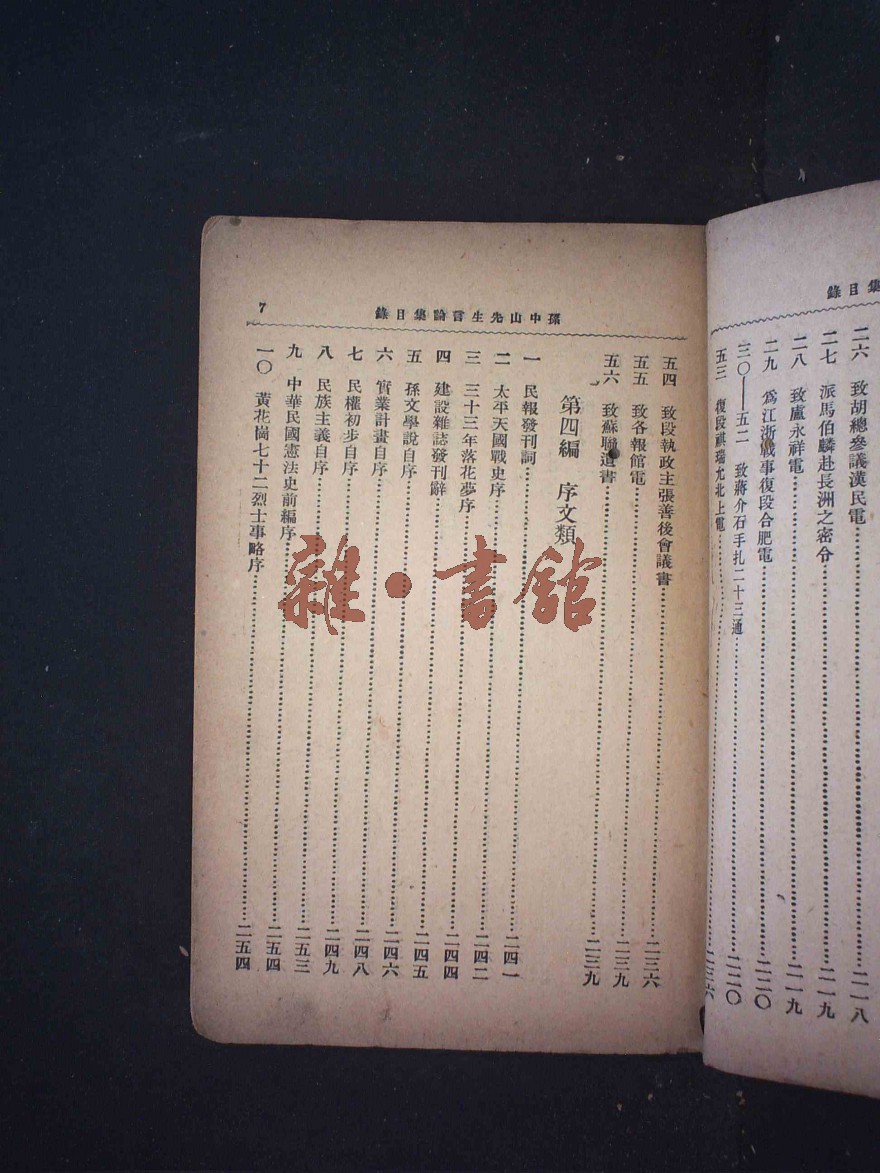 集目錄
二六 致胡總參議漢民電 二一八
二七 派馬伯麟赴長洲之密令 二一九
二八 致盧永祥電 二一九
二九 爲江浙戰事復段合肥電 二二〇
三〇——五二 致蔣介石手扎二十三通 二二〇
五三 復段祺瑞允北上電
孫中山先生言論集目錄
7
五四 致段執政主張善後會議書 二三六
五五 致各報館電 二三九
五六 致蘇聯遺書 二三九
第四編 序文類
一 民報發刊詞 二四一
二 太平天國戰史序 二四二
三 三十三年落花夢序 二四二
四 建設雜誌發刊辭 二四四
五 孫文學說自序 二四五
六 實業計畫自序 二四六
七 民權初步自序 二四八
八 民族主義自序 二四九
九 中華民國憲法史前編序 二五三
一〇 黃花崗七十二烈士事略序 二五四
雜·書館